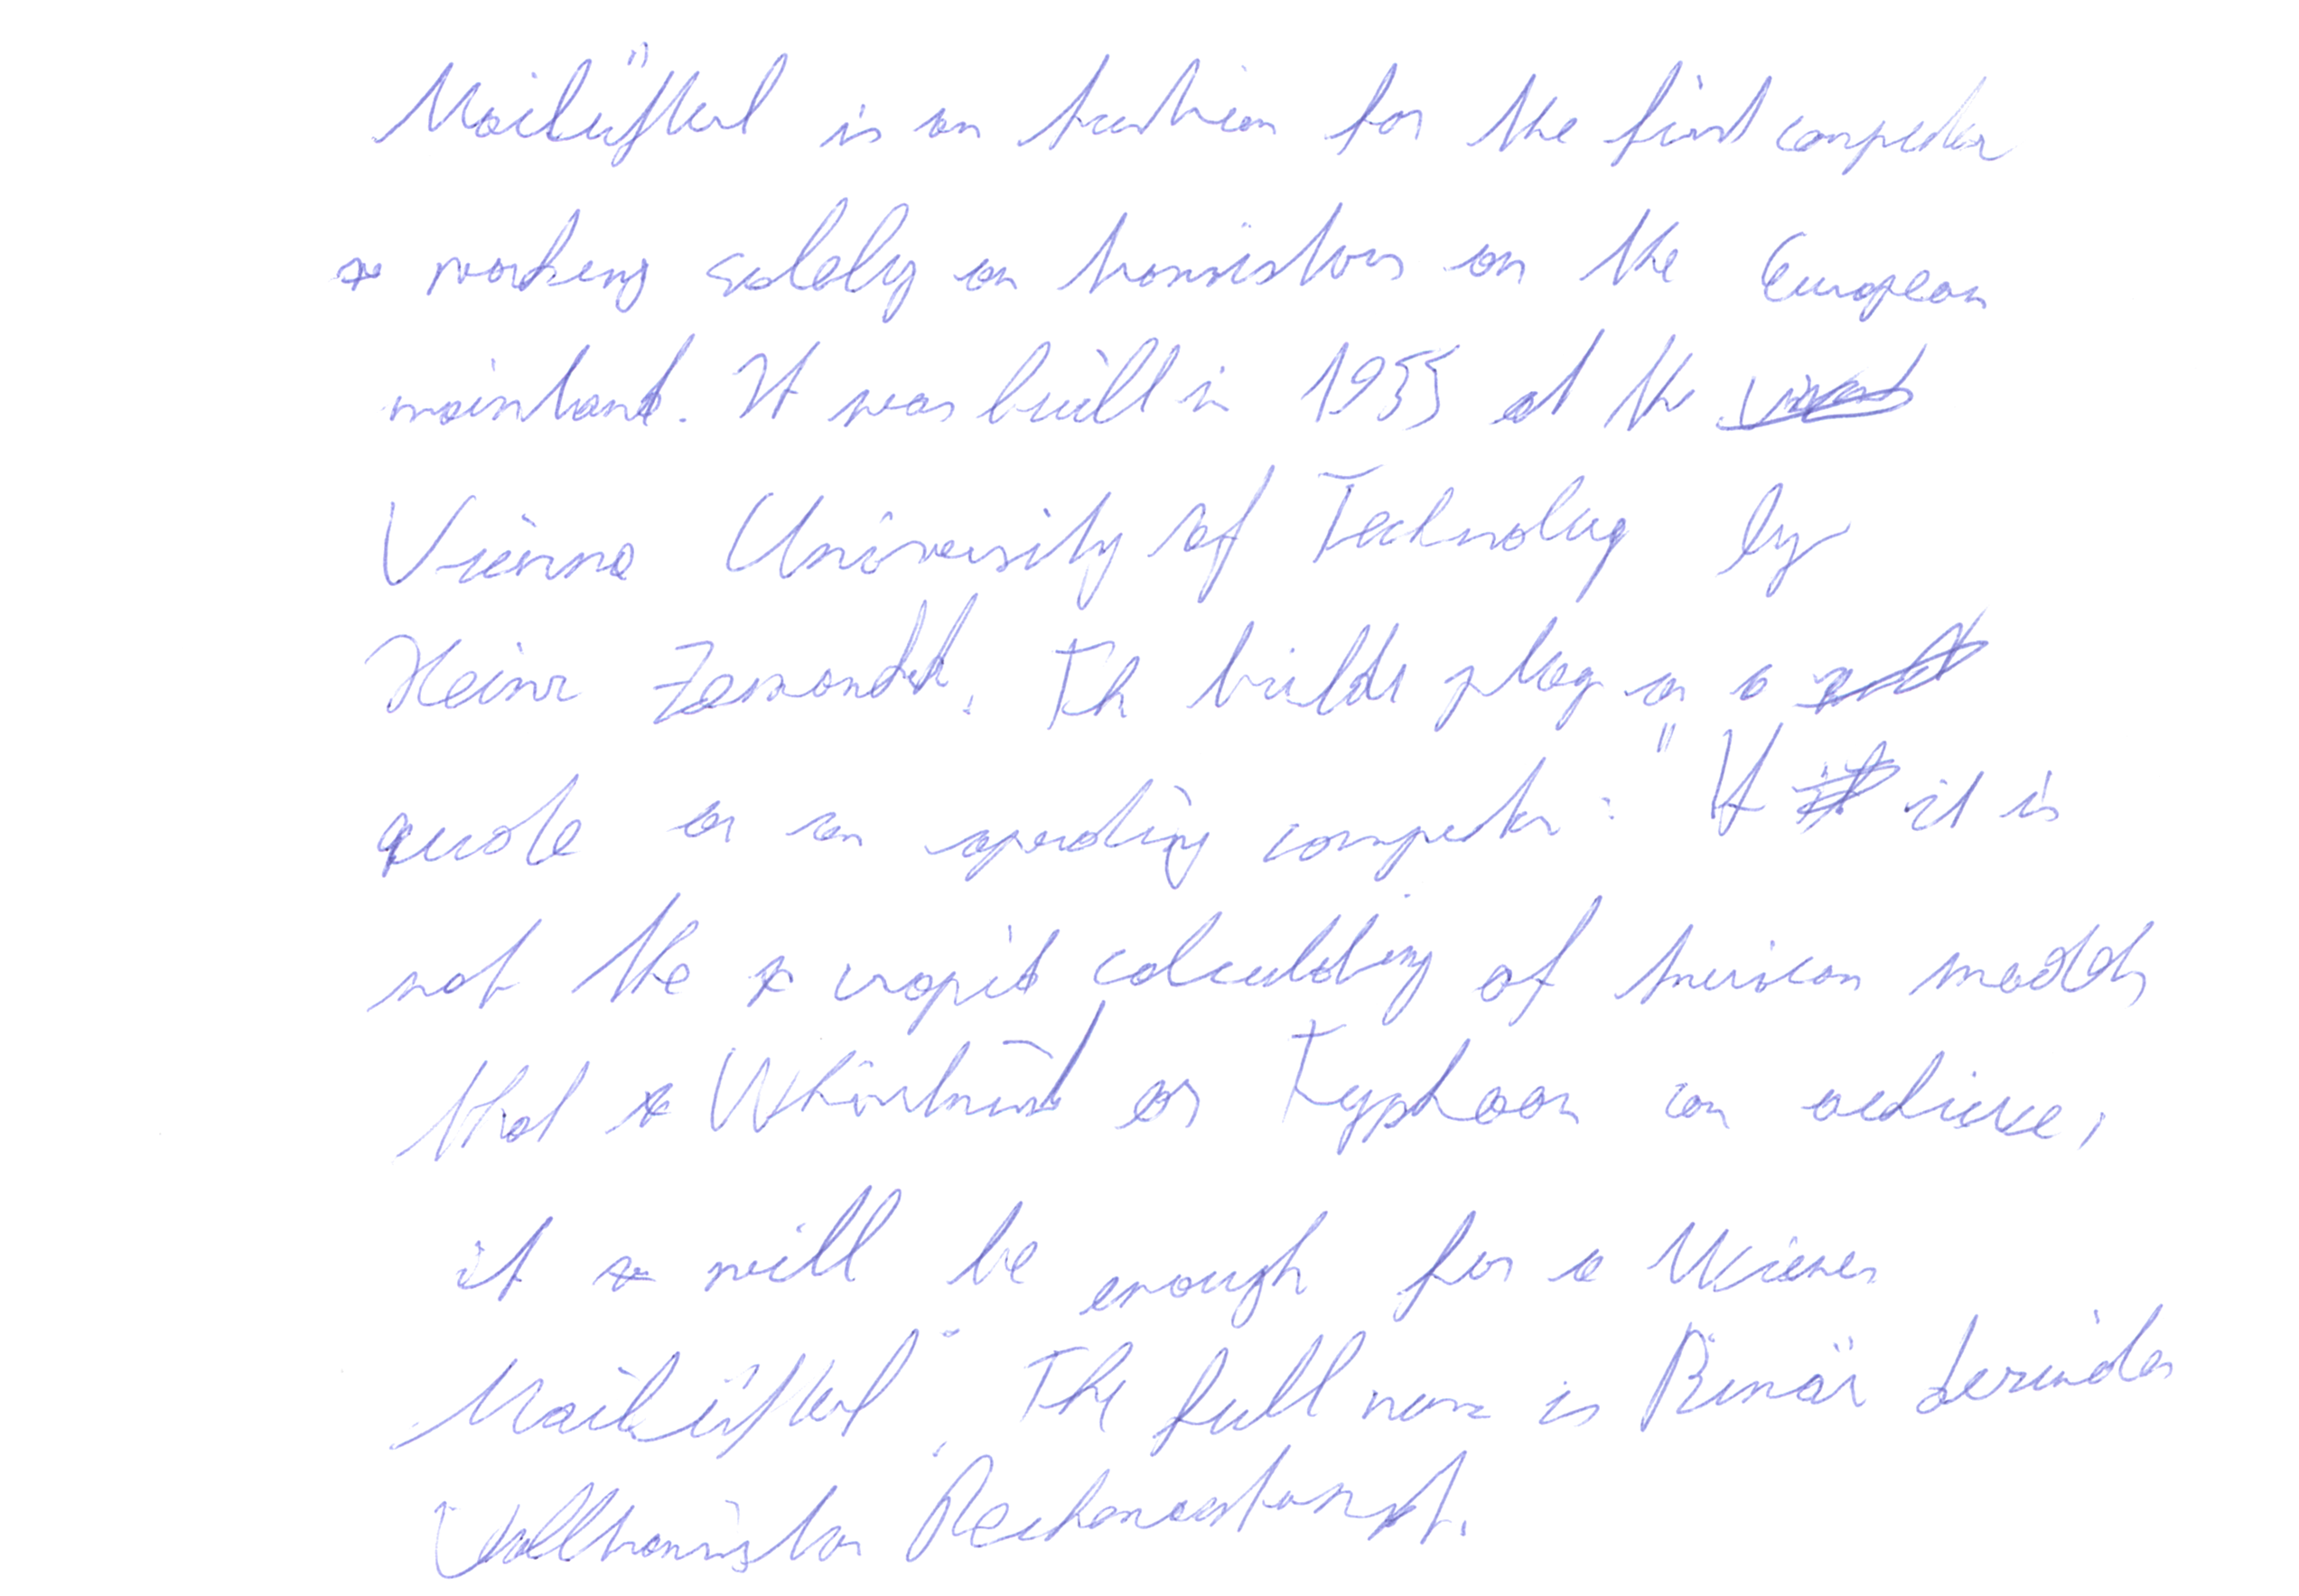 Mailüfterl is an Austrian for the first computer
working solely on transistors on the European
mainland. It was built in 1955 at the
Vienna University of Technology by
Heinz Zemanek. The builder plays on a
quote on an operating computer: "If it is
not the rapid calculating of American models
that Whirlwind or Typhoon can achieve,
it will be enough for a Wiener
Mailüfterl". The full name is Binär dezimaler
Volltransistor Rechenautomat.